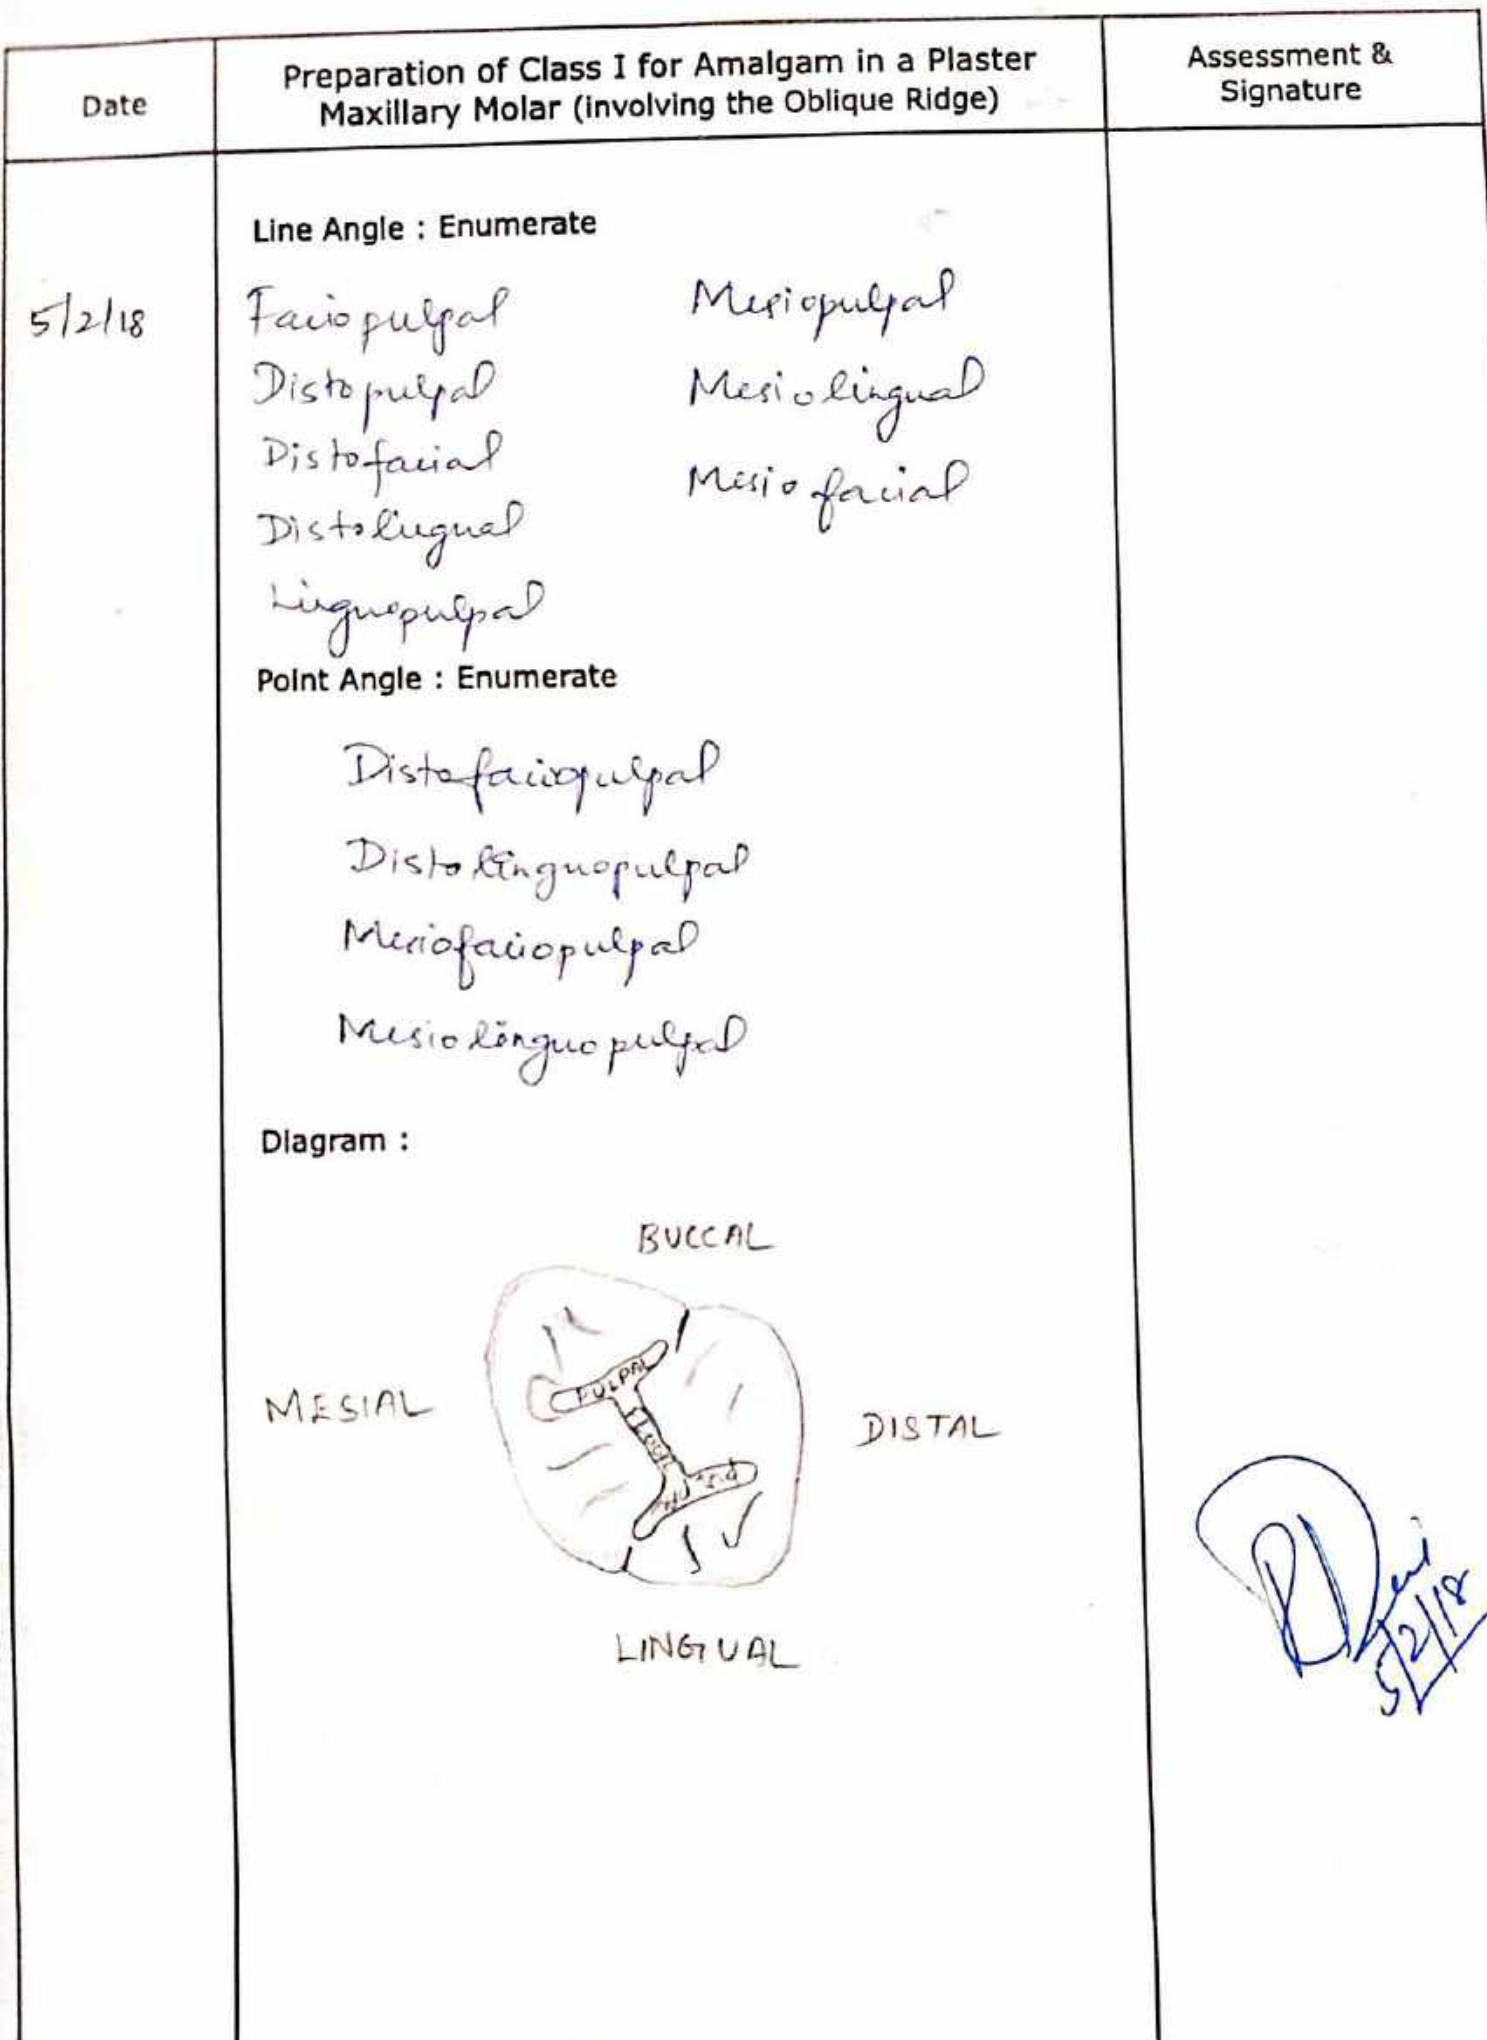 Date
Preparation of Class I for Amalgam in a Plaster
Maxillary Molar (involving the Oblique Ridge)
Assessment &
Signature
5/2/18
Line Angle : Enumerate
Faciopulpal
Mesiopulpal
Distopulpal
Mesiolingual
Distofacial
Mesiofacial
Distolingual
Linguopulpal
Point Angle : Enumerate
Distofaciopulpal
Distolinguopulpal
Mesiofaciopulpal
Mesiolinguopulpal
Diagram :
BUCCAL
PULPAL
MESIAL
FLOOR
DISTAL
LINGUAL
5/2/18